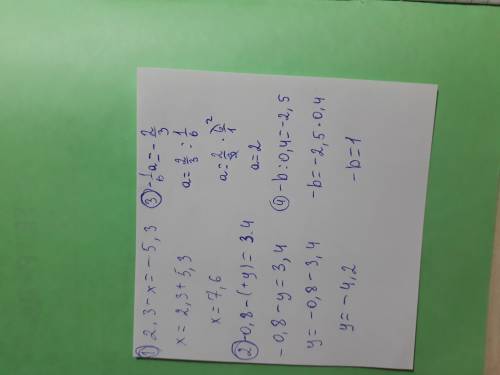 1) 2,3-x=-5,3
x=2,3+5,3
x=7,6
2) -0,8-(+y)=3.4
-0,8-y=3,4
y=-0,8-3,4
y=-4,2
3) -1/6a=-2/3
a=2/3:1/6
a=2/3·6/1 2
a=2
4) -b:0,4=-2,5
-b=-2,5·0,4
-b=1